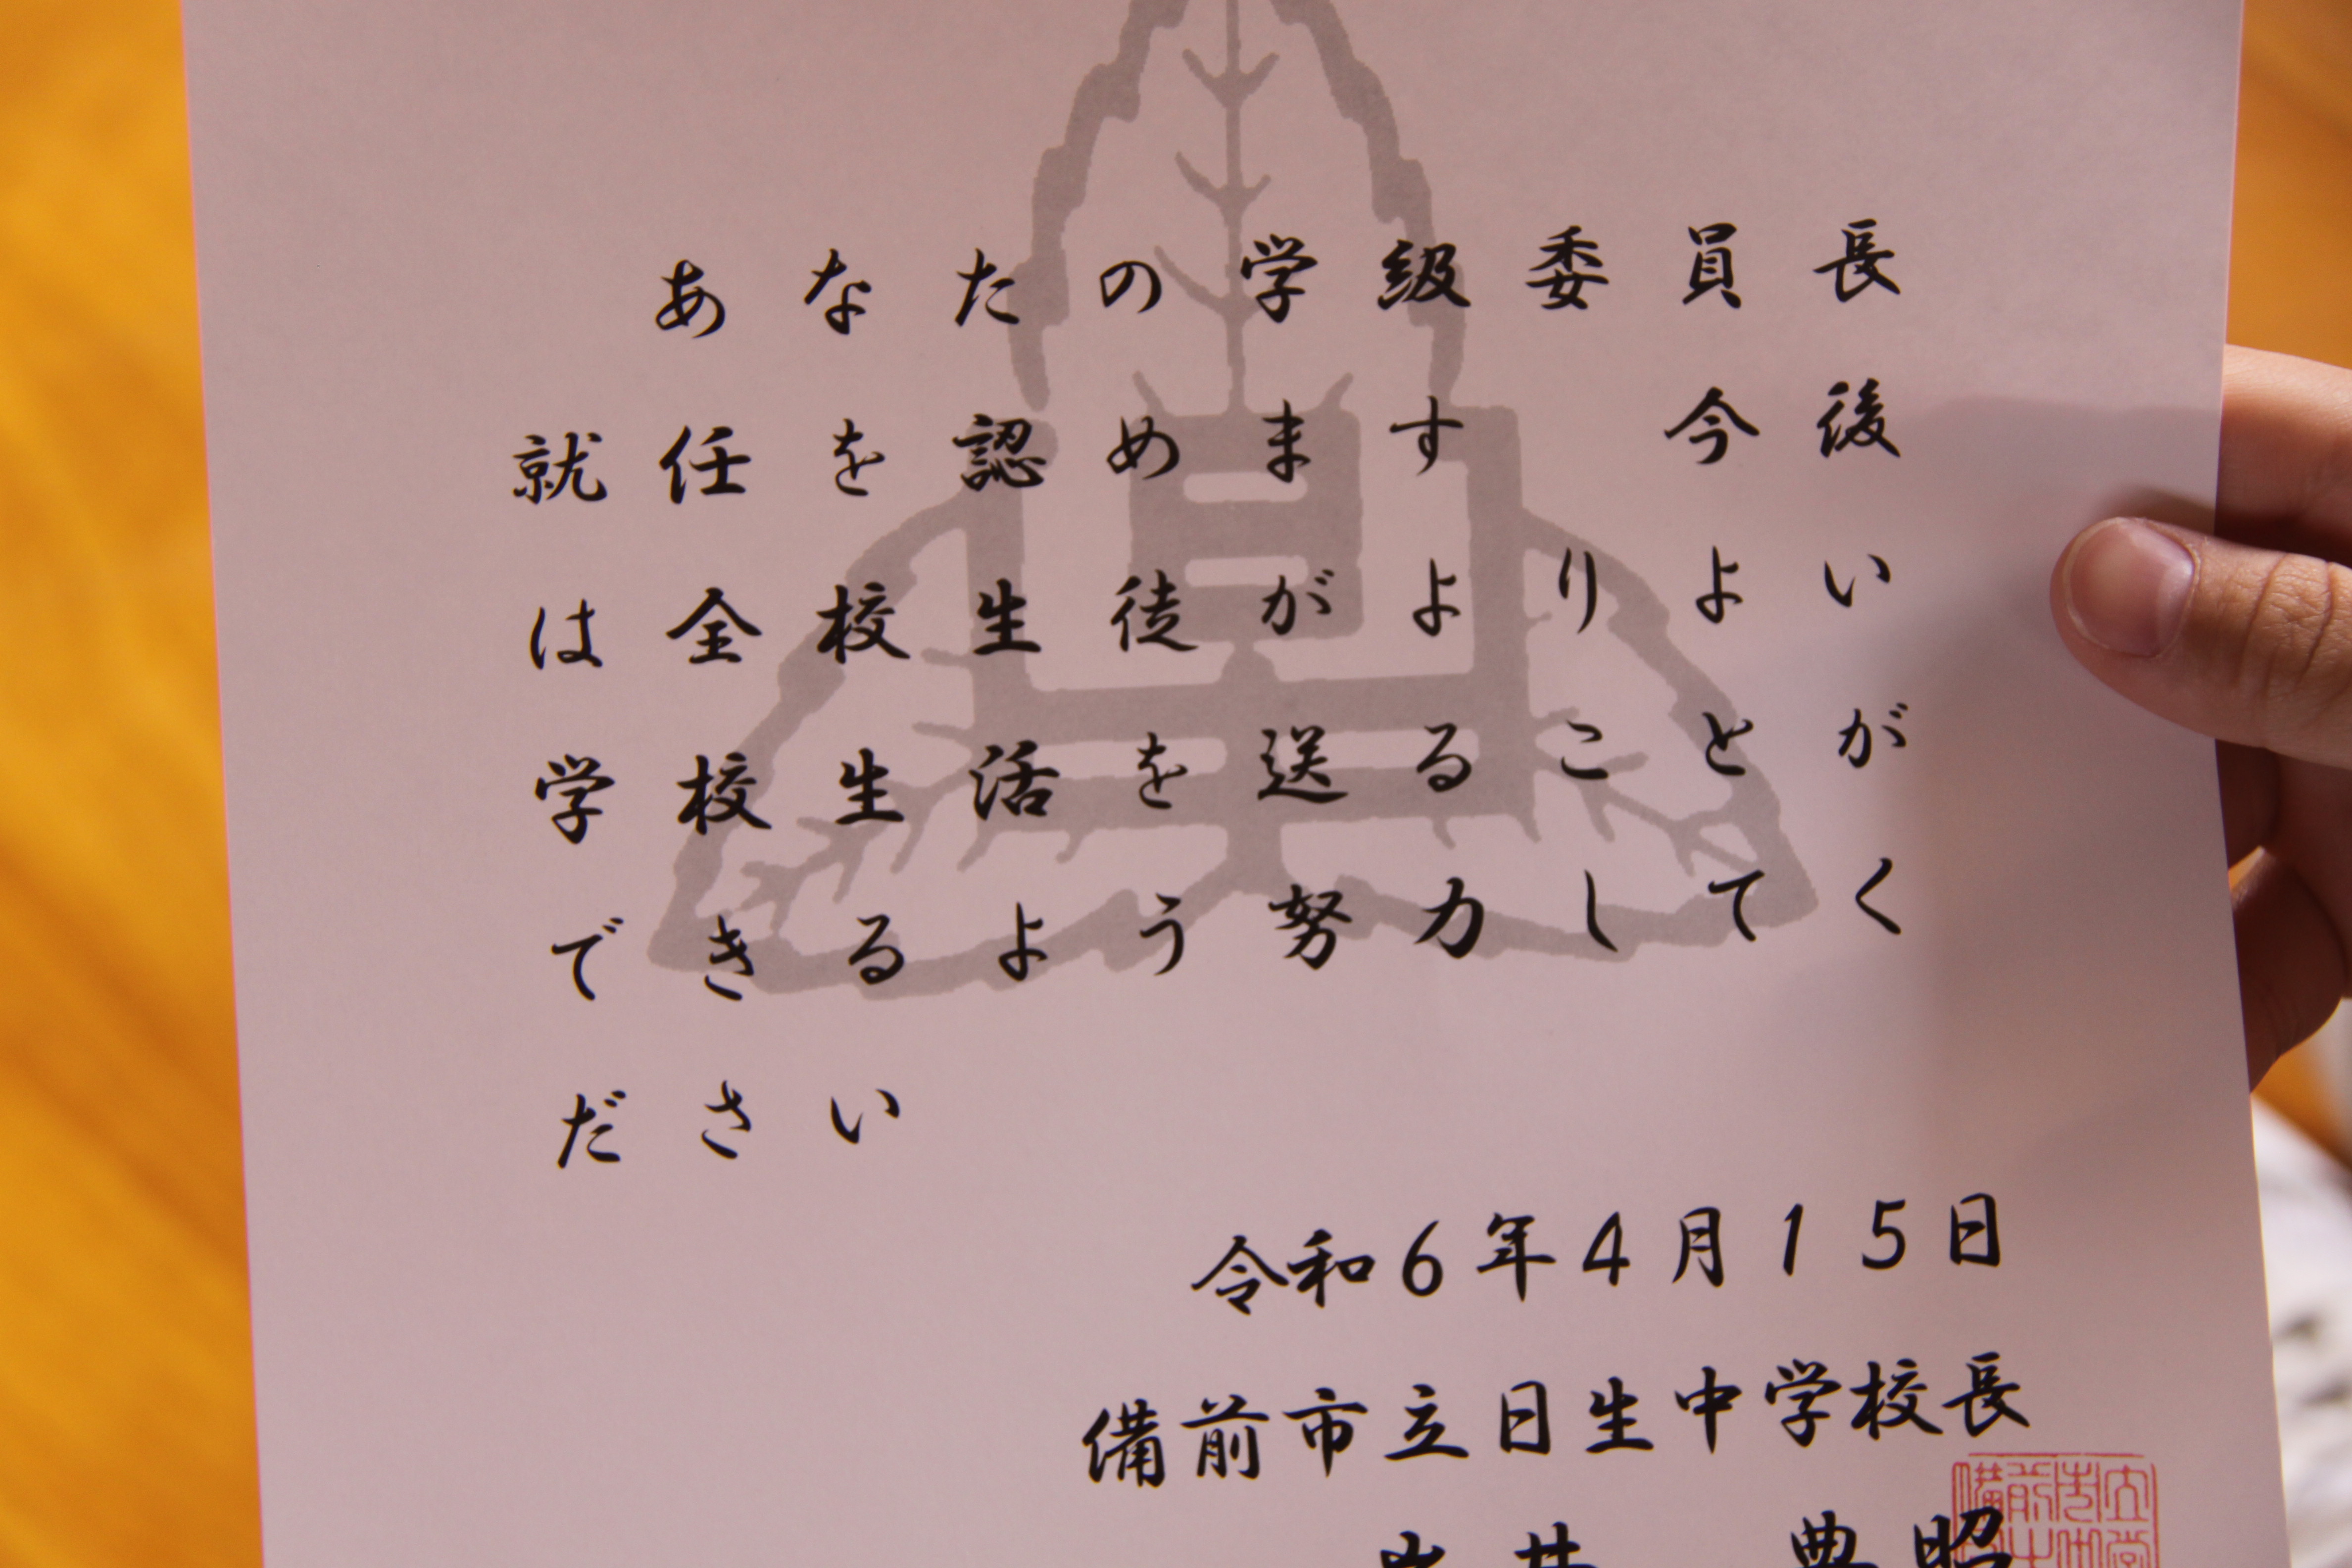 あなたの学級委員長
就任を認めます　今後
は全校生徒がよりよい
学校生活を送ることが
できるよう努力してく
ださい
令和6年4月15日
備前市立日生中学校長
井　典昭